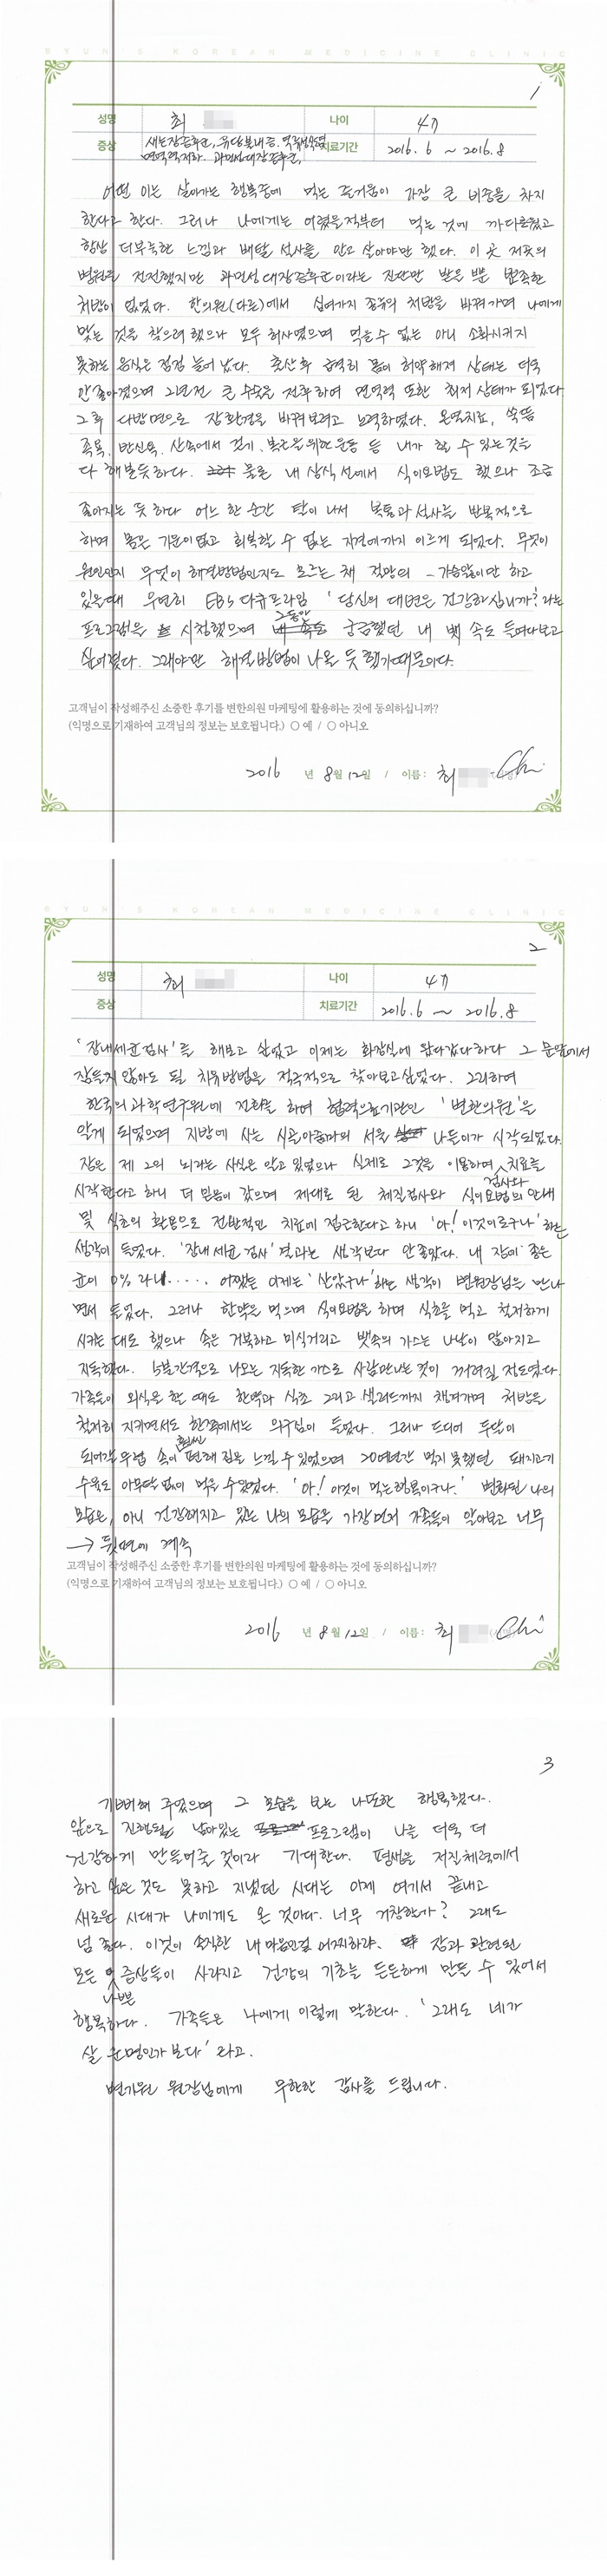 BYUN'S KOREAN MEDICINE CLINIC
1
성명 최 나이 47
증상 새는장증후군, 유당불내증, 역류성식도염 치료기간 2016.6 ~ 2016.8
면역력저하. 과민성대장증후군,
어떤 이는 살아가는 행복중에 먹는 즐거움이 가장 큰 비중을 차지
한다고 한다. 그러나 나에게는 어렸을적부터 먹는 것에 까다로웠고
항상 더부룩한 느낌과 배탈 설사를 안고 살아야만 했다. 이 곳 저곳의
병원을 전전했지만 과민성대장증후군이라는 진단만 받을 뿐 만족한
처방이 없었다. 한의원(다른)에서 십여가지 종류의 처방을 바꿔가며 나에게
맞는 것을 찾으려 했으나 모두 허사였으며 먹을수 없는 아니 소화시키지
못하는 음식은 점점 늘어 났다. 출산후 급격히 몸이 허약해져 상태는 더욱
안좋아졌으며 2년전 큰 수술을 전후하여 면역력 또한 최저 상태가 되었다.
그후 다방면으로 장환경을 바꿔보려고 노력하였다. 온열치료, 쑥뜸
족욕, 반신욕, 산속에서 걷기, 복근을위한운동 등 내가 할 수 있는것을
다 해본듯하다. 물론 내 상식선에서 식이요법도 했으나 조금
좋아지는 듯 하다 어느 한 순간 탈이 나서 복통과 설사를 반복적으로
하며 몸은 기운이없고 회복할 수 없는 지경에까지 이르게 되었다. 무엇이
원인인지 무엇이 해결방법인지도 모르는 채 절망의 - 가슴앓이만 하고
있을때 우연히 EBS 다큐프라임 '당신의 대변은 건강하십니까?'라는
프로그램을 시청했으며 그동안 궁금했던 내 뱃 속도 들여다보고
싶어졌다. 그래야만 해결방법이 나올 듯 했기때문이다.
고객님이 작성해주신 소중한 후기를 변한의원 마케팅에 활용하는 것에 동의하십니까?
(익명으로 기재하여 고객님의 정보는 보호됩니다.) ○ 예 / ○ 아니오
2016 년 8월 12일 / 이름: 최
BYUN'S KOREAN MEDICINE CLINIC
2
성명 최 나이 47
증상 치료기간 2016.6 ~ 2016.8
'장내세균검사'를 해보고 싶었고 이제는 화장실에 왔다갔다하다 그 문앞에서
잠들지 않아도 될 치유방법을 적극적으로 찾아보고싶었다. 그리하여
한국의과학연구원에 전화를 하여 협력의료기관인 '변한의원'을
알게 되었으며 지방에 사는 시골아줌마의 서울 나들이가 시작되었다.
장은 제 2의 뇌라는 사실은 알고 있었으나 실제로 그것을 이용하여 검사와 치료를
시작한다고 하니 더 믿음이 갔으며 제대로 된 체질검사와 식이요법의 안내
및 식초의 활용으로 전반적인 치료에 접근한다고 하니 '아! 이것이로구나' 하는
생각이 들었다. '장내세균검사' 결과는 생각보다 안좋았다. 내 장에 좋은
균이 0% 라니..... 어쨌든 이제는 '살았구나'하는 생각이 변원장님을 만나
면서 들었다. 그러나 한약을 먹으며 식이요법을 하며 식초를 먹고 철저하게
시키는 대로 했으나 속은 거북하고 미식거리고 뱃속의 가스는 나날이 많아지고
지독했다. 5분간격으로 나오는 지독한 가스로 사람만나는것이 꺼려질 정도였다.
가족들이 외식을 할 때도 한약과 식초 그리고 샐러드까지 챙겨가며 처방을
철저히 지키면서도 한쪽에서는 의구심이 들었다. 그러나 드디어 두달이
되어갈 무렵 속이 훨씬 편해 짐을 느낄 수 있었으며 20여년간 먹지 못했던 돼지고기
수육도 아무탈 없이 먹을 수있었다. '아! 이것이 먹는행복이구나.' 변화된 나의
모습은, 아니 건강해지고 있는 나의 모습을 가장먼저 가족들이 알아보고 너무
→ 뒷면에 계속
고객님이 작성해주신 소중한 후기를 변한의원 마케팅에 활용하는 것에 동의하십니까?
(익명으로 기재하여 고객님의 정보는 보호됩니다.) ○ 예 / ○ 아니오
2016 년 8월 12일 / 이름: 최
3
기뻐해 주었으며 그 모습을 보는 나또한 행복했다.
앞으로 진행될 남아있는 프로그램이 나를 더욱 더
건강하게 만들어줄 것이라 기대한다. 평생을 저질체력에서
하고 싶은 것도 못하고 지냈던 시대는 이제 여기서 끝내고
새로운 시대가 나에게도 온 것이다. 너무 거창한가? 그래도
넘 좋다. 이것이 솔직한 내 마음인걸 어찌하랴. 장과 관련된
모든 나쁜 증상들이 사라지고 건강의 기초를 든든하게 만들 수 있어서
행복하다. 가족들은 나에게 이렇게 말한다. '그래도 네가
살 운명인가 보다' 라고.
변기원 원장님에게 무한한 감사를 드립니다.